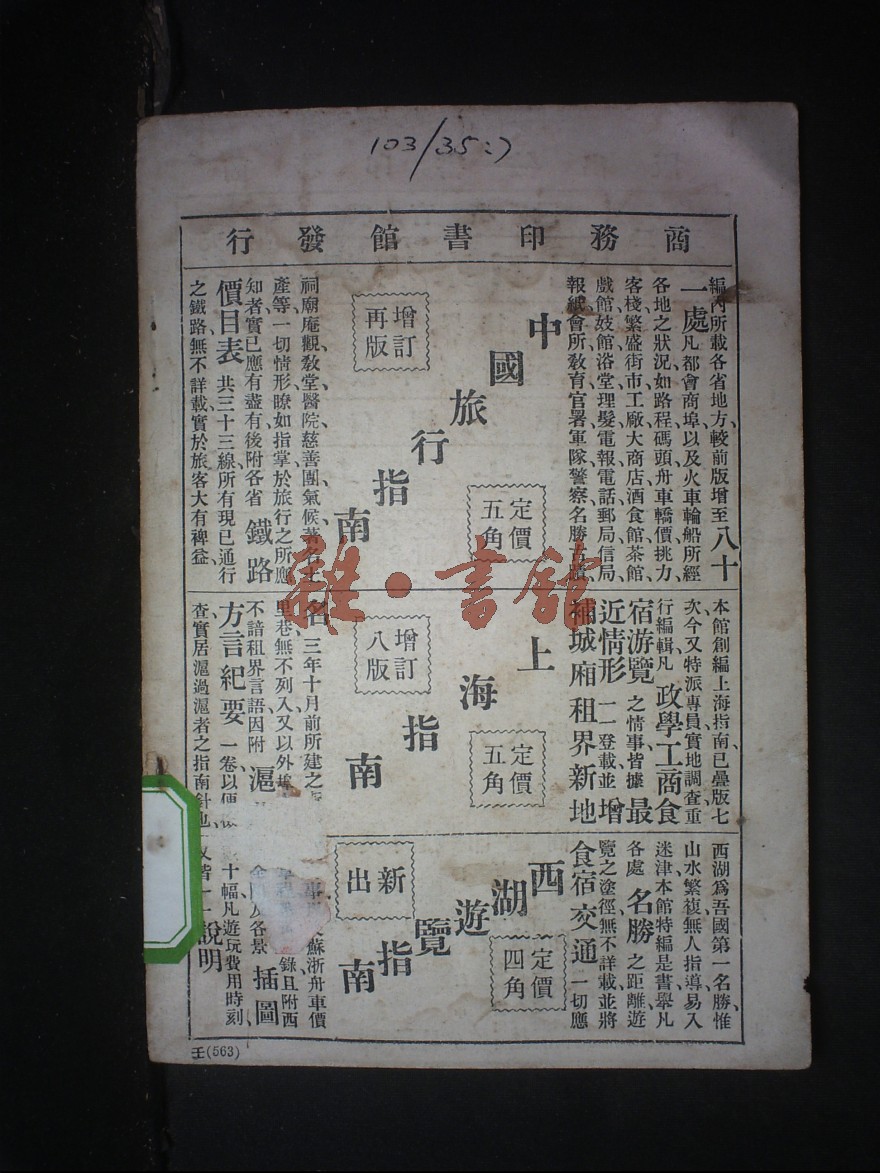 103/35:7
商務印書館發行
編內所載各省地方、較前版增至八十
一處凡都會商埠、以及火車輪船所經
各地之狀況如路程碼頭、舟車轎價挑力、
客棧繁盛街市工廠大商店酒食館茶館、
戲館妓館浴堂理髮電報電話郵局信局、
報紙會所教育官署軍隊警察名勝古蹟、
中國旅行指南
定價五角
增訂再版
祠廟庵觀教堂醫院慈善團氣候著名土
產等、一切情形瞭如指掌於旅行之所應
知者實已應有盡有後附各省鐵路
價目表共三十三線所有現已通行
之鐵路無不詳載實於旅客大有裨益
本館創編上海指南已疊版七
次今又特派專員實地調查重
行編輯凡政學工商食
宿游覽之情事皆據最
近情形一一登載並增
補城廂租界新地
上海指南
定價五角
增訂八版
名三年十月前所建之
里巷無不列入又以外埠
不諳租界言語因附滬
方言紀要一卷以便
查實居滬過滬者之指南針也
西湖爲吾國第一名勝惟
山水繁複無人指導易入
迷津本館特編是書舉凡
各處名勝之距離遊
覽之塗徑無不詳載並將
食宿交通一切應
西湖遊覽指南
定價四角
新出
蘇浙舟車價
錄且附西
及各景插圖
十幅凡遊玩費用時刻
又皆一一說明
壬(563)
雜·書館